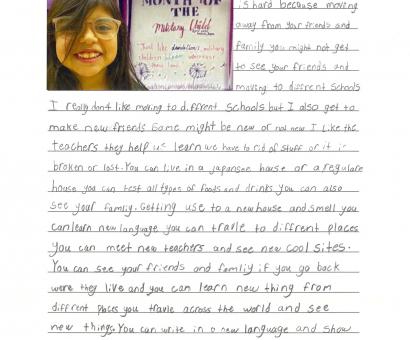 MONTH OF
THE
Military Child
Just like dandelions, military
children bloom wherever
they land.
is hard because moving
away from your friends and
family you might not get
to see your friends and
moving to diffrent schools
I really dont like moving to diffrent schools but I also get to
make new friends some might be new or not new I like the
teachers they help us learn we have to rid of stuff or it is
broken or lost. You can live in a japanese house or a regulare
house you can test all types of foods and drinks you can also
see your family. Getting use to a new house and smell you
can learn new language you can travle to different places
you can meet new teachers and see new cool sites.
You can see your friends and famliy if you go back
were they live and you can learn new thing from
diffrent places you travle across the world and see
new things. You can write in a new language and show